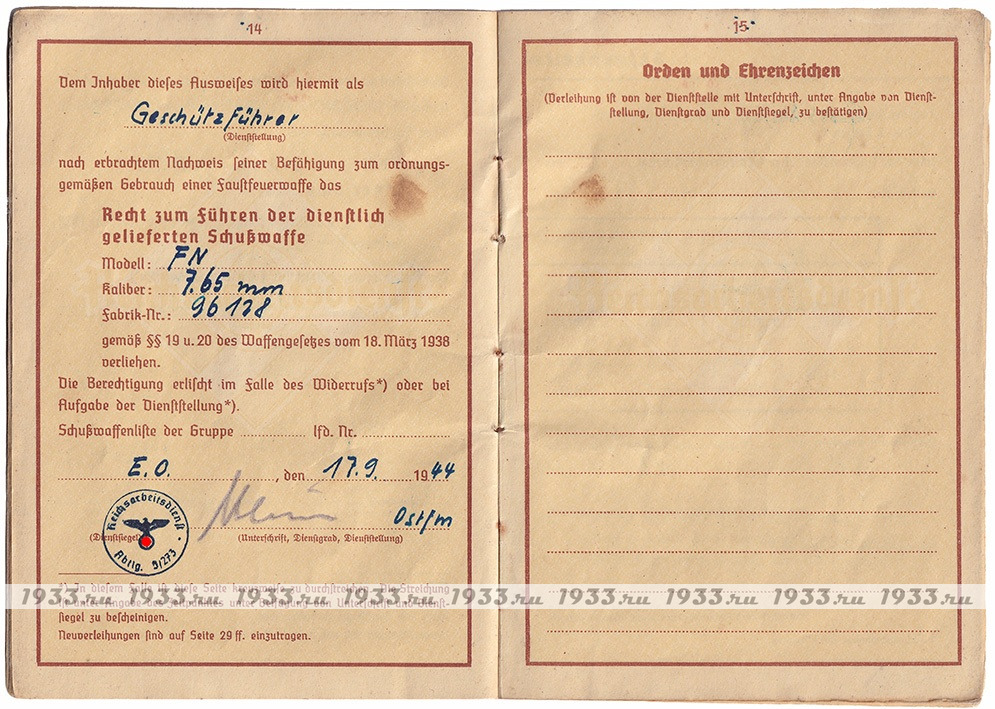 14
Dem Inhaber dieses Ausweises wird hiermit als
Geschützführer
(Dienststellung)
nach erbrachtem Nachweis seiner Befähigung zum ordnungs-
gemäßen Gebrauch einer Faustfeuerwaffe das
Recht zum Führen der dienstlich
gelieferten Schußwaffe
Modell: FN
Kaliber: 7.65 mm
Fabrik-Nr.: 96128
gemäß §§ 19 u. 20 des Waffengesetzes vom 18. März 1938
verliehen.
Die Berechtigung erlischt im Falle des Widerrufs*) oder bei
Aufgabe der Dienststellung*).
Schußwaffenliste der Gruppe lfd. Nr.
E.O., den 17.9. 1944
Ostfm
(Dienstsiegel) (Unterschrift, Dienstgrad, Dienststellung)
Reichsarbeitsdienst
Abtlg. 9/273
*) In diesem Falle ist diese Seite kreuzweise zu durchstreichen. Die Streichung
ist unter Angabe des Zeitpunktes unter Beifügung von Unterschrift und Dienst-
siegel zu bescheinigen.
Neuverleihungen sind auf Seite 29 ff. einzutragen.
15
Orden und Ehrenzeichen
(Verleihung ist von der Dienststelle mit Unterschrift, unter Angabe von Dienst-
stellung, Dienstgrad und Dienstsiegel, zu bestätigen)
1933.ru 1933.ru 1933.ru 1933.ru 1933.ru 1933.ru 1933.ru 1933.ru 1933.ru